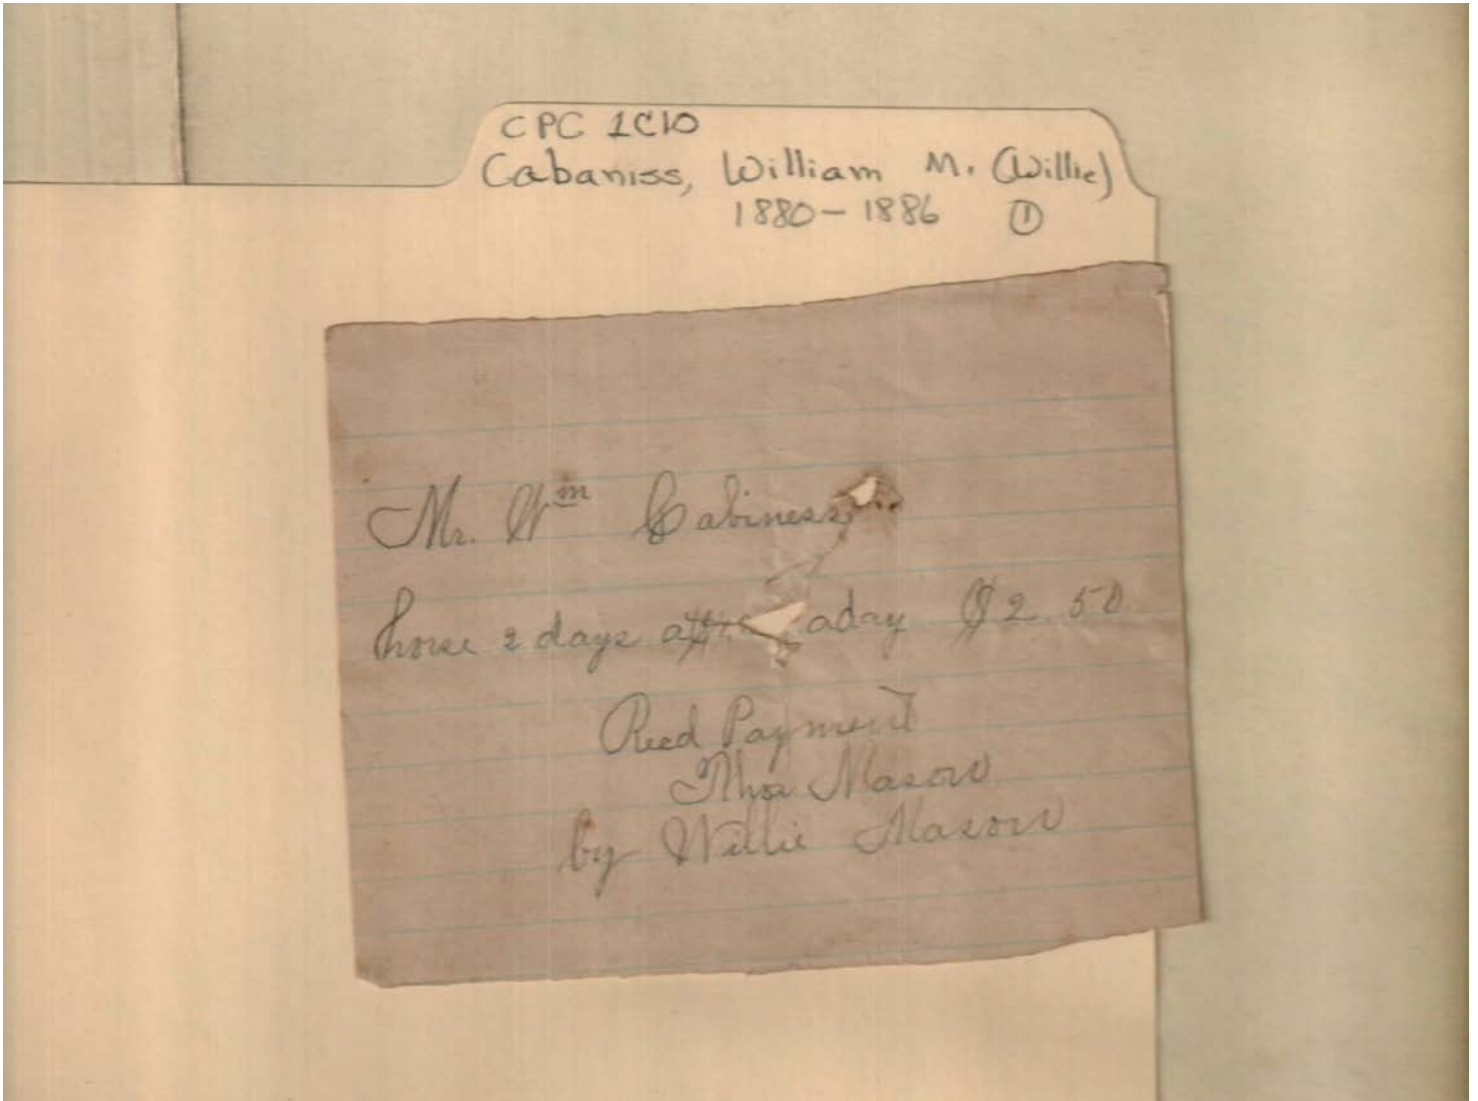 CPC 1C10
Cabaniss, William M. (Willie)
1880-1886 ①
Mr. Wm Cabiness
horse 2 days aday $2.50
Recd Payment
Thos Mason
by Willie Mason